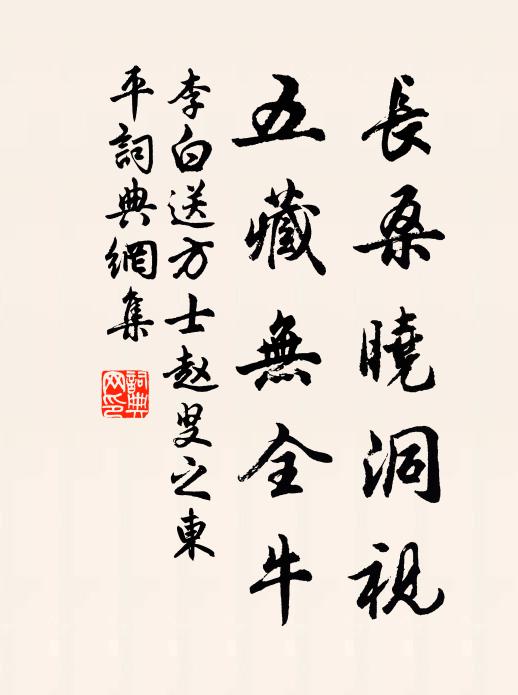 長桑曉洞視
五藏無全牛
李白送方士赵叟之東
平詞典網集
詞典
网印